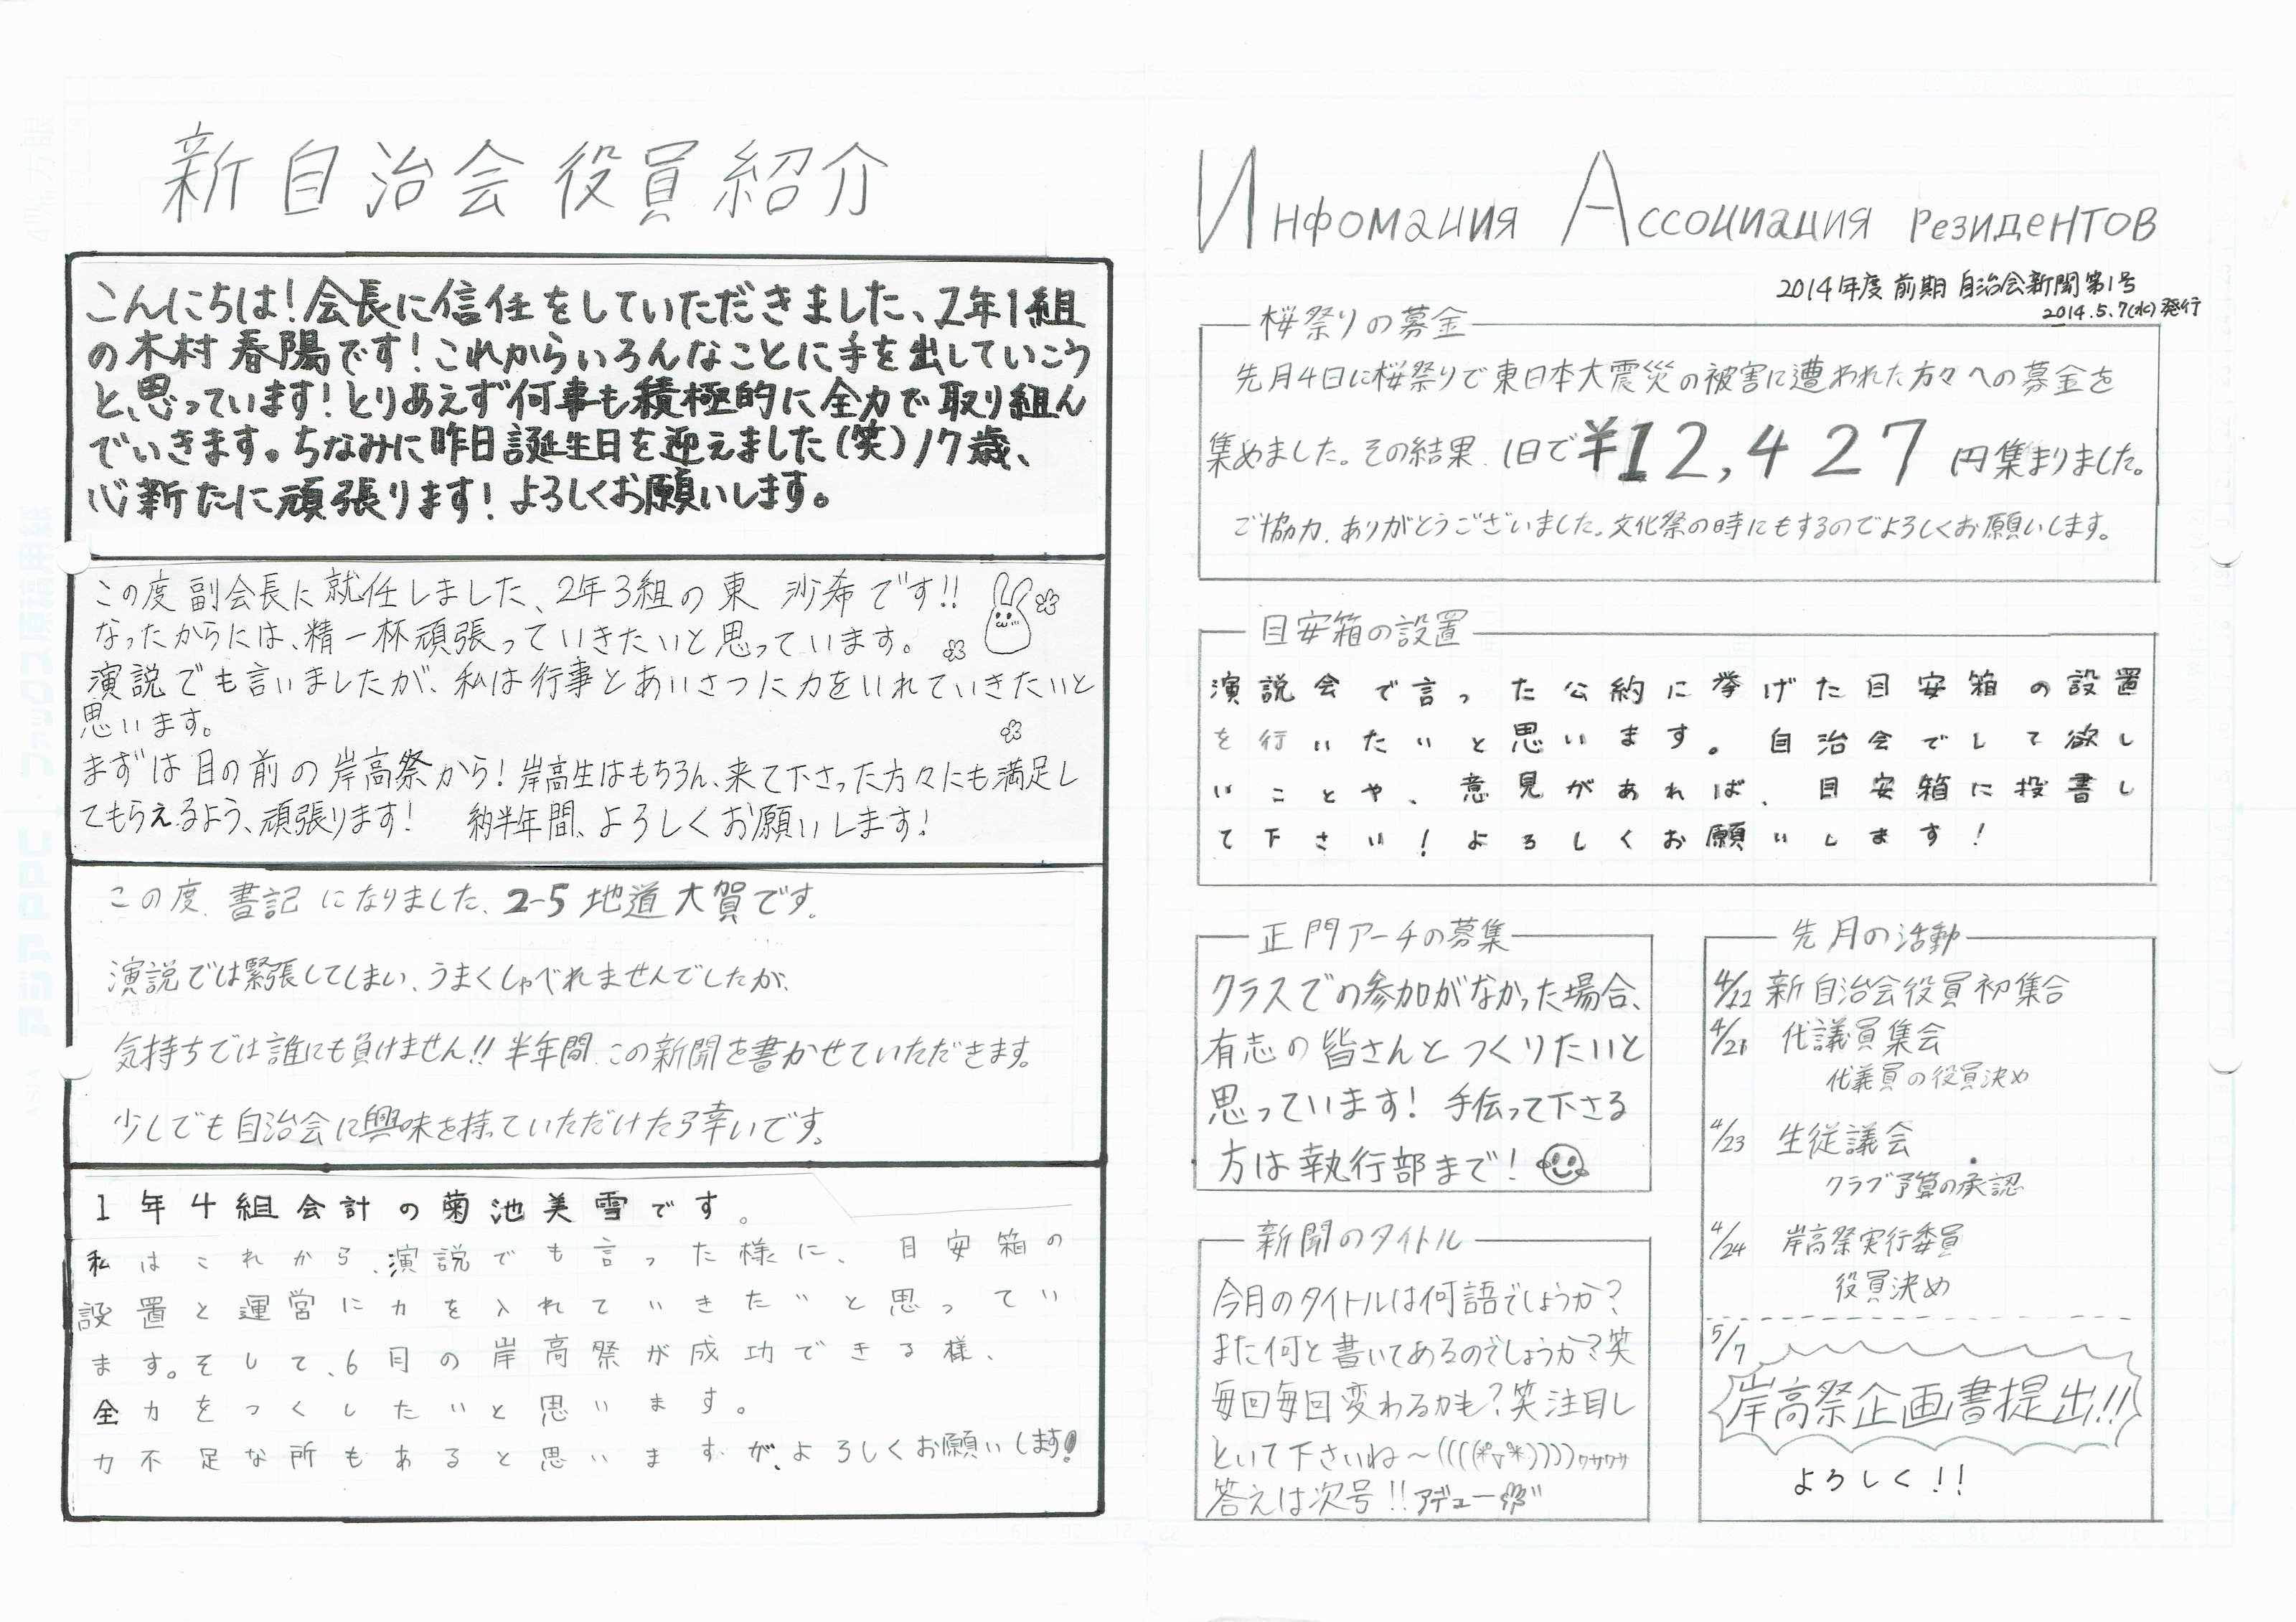 新自治会役員紹介
こんにちは!会長に信任をしていただきました、2年1組
の木村 春陽です!これからいろんなことに手を出していこう
と、思っています!とりあえず何事も積極的に全力で取り組ん
でいきます。ちなみに昨日誕生日を迎えました(笑)17歳、
心新たに頑張ります!よろしくお願いします。
この度 副会長に就任しました、2年3組の東 沙希です!!
なったからには、精一杯頑張っていきたいと思っています。
演説でも言いましたが、私は行事とあいさつに力をいれていきたいと
思います。
まずは目の前の岸高祭から!岸高生はもちろん、来て下さった方々にも満足し
てもらえるよう、頑張ります! 約半年間、よろしくお願いします!
この度、書記になりました、2-5 地道大賀です。
演説では緊張してしまい、うまくしゃべれませんでしたが、
気持ちでは誰にも負けません!!半年間、この新聞を書かせていただきます。
少しでも自治会に興味を持っていただけたら幸いです。
1年4組会計の菊池美雪です。
私はこれから、演説でも言った様に、目安箱の
設置と運営に力を入れていきたいと思ってい
ます。そして、6月の岸高祭が成功できる様、
全力をつくしたいと思います。
力不足な所もあると思いますが、よろしくお願いします!
Инфомация Ассоциация резидентов
2014年度 前期 自治会新聞第1号
2014.5.7(水)発行
桜祭りの募金
先月4日に桜祭りで東日本大震災の被害に遭われた方々への募金を
集めました。その結果、1日で¥12,427円集まりました。
ご協力、ありがとうございました。文化祭の時にもするのでよろしくお願いします。
目安箱の設置
演説会で言った公約に挙げた目安箱の設置
を行いたいと思います。自治会でして欲し
いことや、意見があれば、目安箱に投書し
て下さい!よろしくお願いします!
正門アーチの募集
クラスでの参加がなかった場合、
有志の皆さんとつくりたいと
思っています!手伝って下さる
方は執行部まで!
新聞のタイトル
今月のタイトルは何語でしょうか?
また何と書いてあるのでしょうか?笑
毎回毎回変わるかも?笑注目し
といて下さいね〜((((*▽*))))ワサワサ
答えは次号!!アデュー
先月の活動
4/12 新自治会役員初集合
4/21 代議員集会
代義員の役員決め
4/23 生従議会
クラブ予算の承認
4/24 岸高祭実行委員
役員決め
5/7
岸高祭企画書提出!!
よろしく!!
アジア PPC ファックス原稿用紙
ASIA
4㎜方眼